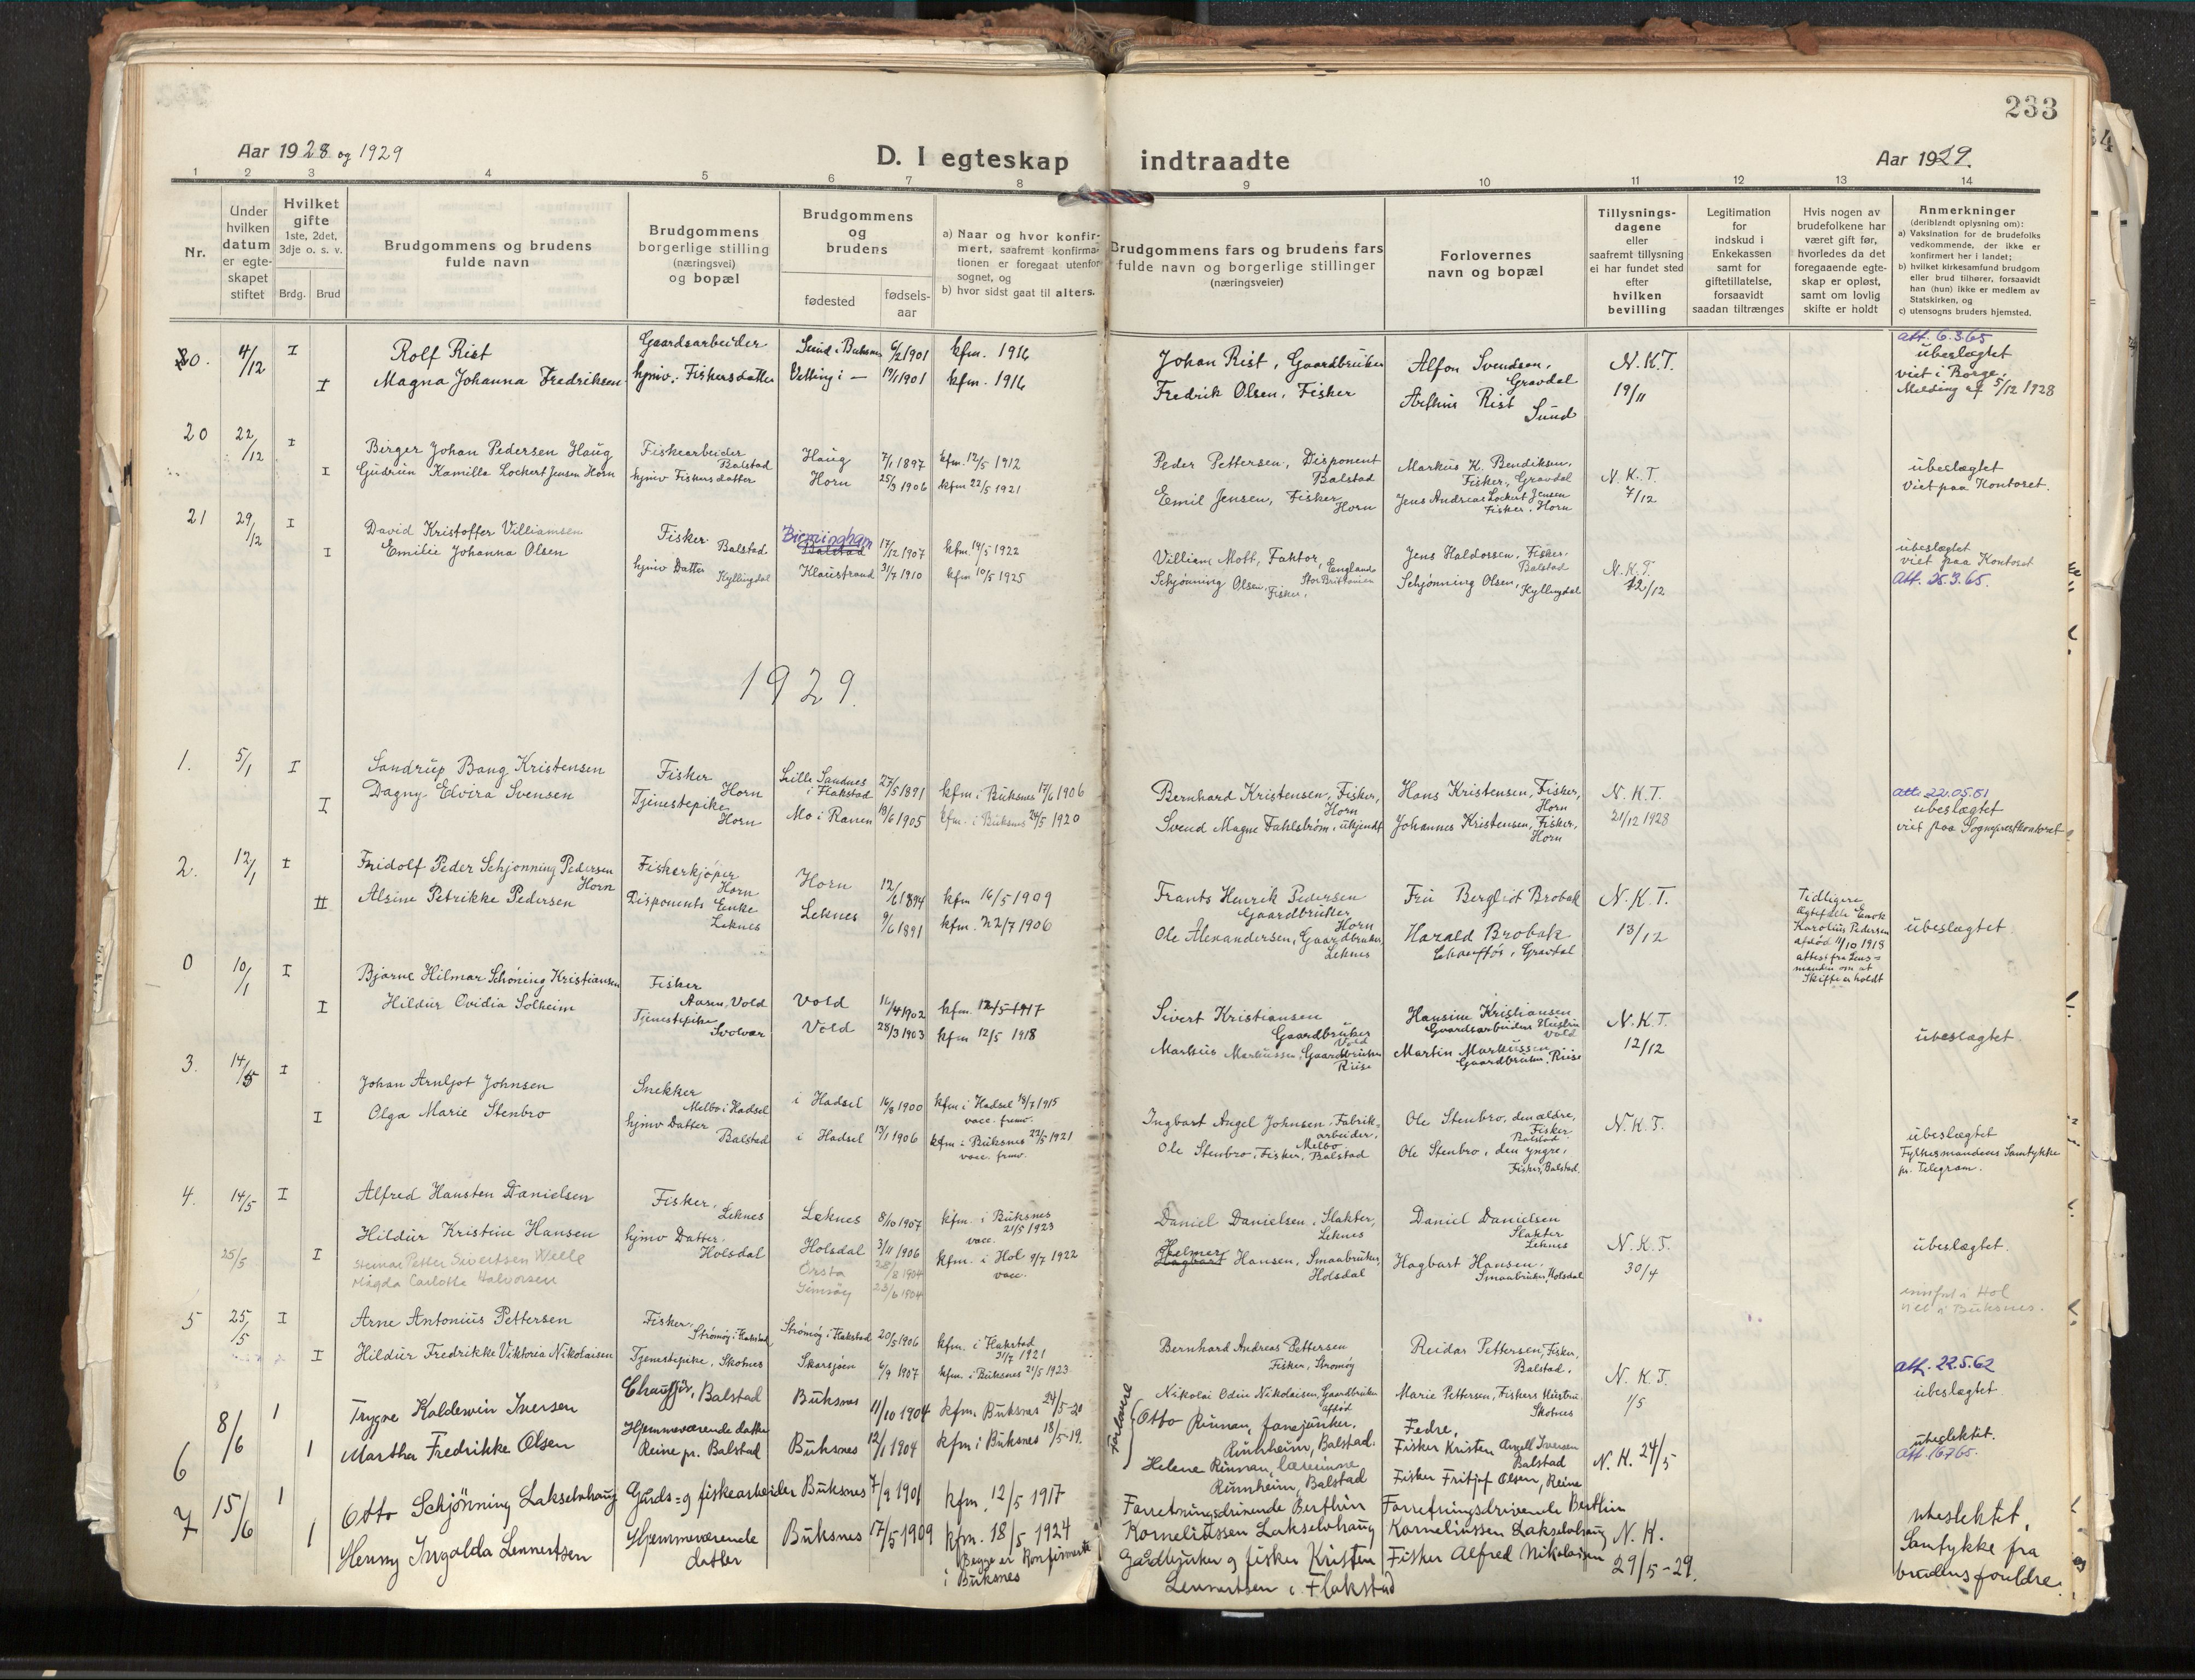 233
Aar 1928 og 1929
D. I egteskap indtraadte
Aar 1929.
1 2 3 4 5 6 7 8 9 10 11 12 13 14
Nr.
Under hvilken datum er egte-skapet stiftet
Hvilket gifte 1ste, 2det, 3dje o. s. v.
Brdg. Brud
Brudgommens og brudens fulde navn
Brudgommens borgerlige stilling (næringsvei) og bopæl
Brudgommens og brudens
fødested
fødsels-aar
a) Naar og hvor konfir-mert, saafremt konfirma-tionen er foregaat utenfor sognet, og
b) hvor sidst gaat til alters.
Brudgommens fars og brudens fars fulde navn og borgerlige stillinger (næringsveier)
Forlovernes navn og bopæl
Tillysnings-dagene eller saafremt tillysning ei har fundet sted efter hvilken bevilling
Legitimation for indskud i Enkekassen samt for giftetillatelse, forsaavidt saadan tiltrænges
Hvis nogen av brudefolkene har været gift før, hvorledes da det foregaaende egte-skap er opløst, samt om lovlig skifte er holdt
Anmerkninger (deriblandt oplysning om):
a) Vaksination for de brudefolks vedkommende, der ikke er konfirmert her i landet;
b) hvilket kirkesamfund brudgom eller brud tilhører, forsaavidt han (hun) ikke er medlem av Statskirken, og
c) utensogns bruders hjemsted.
4/12 I Rolf Rist Gaardsarbeider Sund i Buksnes 6/2 1901 kfm. 1916 Johan Rist, Gaardbruker Alfon Svendsen, Gravdal N.K.T. att. 6.3.65
I Magna Johanna Fredriksen hjmv. Fiskersdatter Vetting i — 19/1 1901 kfm. 1916 Fredrik Olsen, Fisker Arthur Rist Sund 19/11 ubeslægtet viet i Borge. Melding af 5/12 1928
20 22/12 I Birger Johan Pedersen Haug Fiskearbeider Balstad Haug 7/1 1897 kfm. 12/5 1912 Peder Pettersen, Disponent Balstad Markus K. Bendiksen, Fisker, Gravdal N.K.T. ubeslægtet
I Gudrun Kamilla Lockert Jensen Horn hjmv Fiskersdatter Horn 25/3 1906 kfm 22/5 1921 Emil Jensen, Fisker Horn Jens Andreas Lockert Jensen Fisker, Horn 7/12 Viet paa Kontoret.
21 29/12 I David Kristoffer Villiamsen Fisker Balstad. Birmingham Balstad 17/12 1907 kfm. 14/5 1922 Villiam Mott, Faktor, England Stor Brittanien Jens Haldossen, Fisker, Balstad N.K.T. ubeslægtet viet paa Kontoret
I Emilie Johanna Olsen hjmv Datter Kyllingdal Klaustrand 31/7 1910 kfm 10/5 1925 Schjønning Olsen, Fisker, Schjønning Olsen, Kyllingdal 12/12 Att. 25.3.65.
1929.
1. 5/1 I Sandrup Bang Kristensen Fisker Horn Lille Sandnes i Flakstad 27/5 1891 kfm i Buksnes 17/6 1906 Bernhard Kristensen, Fisker, Horn Hans Kristensen, Fisker, Horn N.K.T. att. 22.05.51 ubeslægtet
I Dagny Elvira Svensen Tjenestepike Horn Mo i Ranen 18/6 1905 kfm. i Buksnes 24/5 1920 Svend Magne Fahlstrøm, ukjendt Johannes Kristensen, Fisker, Horn 21/12 1928 viet paa Sogneprestkontoret
2. 12/1 I Fridolf Peder Schjønning Pedersen Horn Fiskerkjøper Horn Horn 12/6 1894 kfm 16/5 1909 Frants Henrik Pedersen Gaardbruker Horn Fru Bergliot Brobak N.K.T. ubeslægtet
II Alsine Petrikke Pedersen Disponents Enke Leknes Leknes 9/6 1891 kfm. 22/7 1906 Ole Alexandersen, Gaardbruker, Leknes Harald Brobak Gravdal 13/12 Tidligere Karolius Pedersen afdød 11/10 1918 attest fra Lens-manden om at Skifte er holdt
0 10/1 I Bjarne Hilmar Schøning Kristiansen Fisker Aasen, Vold Vold 16/4 1902 kfm. 12/5 1917 Sivert Kristiansen Gaardbruker Vold Hansine Kristiansen Gaardsarbeiders Hustru Vold N.K.T. ubeslægtet
I Hildur Ovidia Solheim Tjenestepike Svolvær Vold 28/3 1903 kfm 12/5 1918 Markus Markussen, Gaardbruker Riise Martin Markussen Gaardbruker, Riise 12/12
3. 14/5 I Johan Arnljot Johnsen Snekker Melbo i Hadsel i Hadsel 16/8 1900 kfm i Hadsel 18/7 1915 vacc. fremv. Ingbart Angel Johnsen, Fabrik-arbeider, Melbo Ole Stenbro, den ældre, Fisker Balstad N.K.T. ubeslægtet
I Olga Marie Stenbro hjmv Datter Balstad i Hadsel 13/1 1906 kfm i Buksnes 22/5 1921 vacc. fremv. Ole Stenbro, Fisker, Balstad Ole Stenbro, den yngre, Fisker, Balstad. Fylkesmandens Samtykke pr. Telegram.
4. 14/5 I Alfred Hansten Danielsen Fisker, Leknes Leknes 8/10 1907 kfm. i Buksnes 21/5 1923 vacc. Daniel Danielsen, Slakter, Leknes Daniel Danielsen Slakter Leknes N.K.T. ubeslægtet.
I Hildur Kristine Hansen hjmv Datter, Holsdal Holsdal 3/11 1906 kfm. i Hol 9/7 1922 vacc. Helmer Hagbart Hansen, Smaabruker, Holsdal Hagbart Hansen, Smaabruker, Holsdal 30/4
25/5 Steinar Petter Sivertsen Welle Ørsta 28/8 1904
Magda Carlotte Halvorsen Gimsøy 23/6 1904 innført i Hol i Buksnes.
5 25/5 I Arne Antonius Pettersen Fisker, Strømøy i Flakstad Strømøy i Flakstad 20/5 1906 kfm. i Flakstad 31/7 1921 Bernhard Andreas Pettersen Fisker, Strømøy Reidar Pettersen, Fisker, Balstad. N.K.T. att. 22.5.62
I Hildur Fredrikke Viktoria Nikolaisen Tjenestepike, Skotnes Skarsjøen 6/9 1907 kfm. i Buksnes 21/5 1923 Nikolai Odin Nikolaisen, Gaardbruker afdød Marie Pettersen, Fiskers Hustru Skotnes 1/5 ubeslægtet
6 8/6 1 Trygve Kaldewin Iversen Chauffør, Balstad Buksnes 11/10 1904 kfm. Buksnes 24/5-20 Forlovere Otto Rinnan, fanejunker, Rinnheim, Balstad. Fedre, Fisker Kristen Iversen Balstad N.K. 24/5 ubeslektet.
1 Martha Fredrikke Olsen Hjemmeværende datter Reine pr. Balstad Buksnes 12/1 1904 kfm i Buksnes 18/5-19. Helene Rinnan, lærerinne Rinnheim, Balstad Fisker Fritjof Olsen, Reine att. 16765.
7 15/6 1 Otto Schjønning Lakselvhaug Gårds- og fiskearbeider Buksnes 7/9 1901 kfm. 12/5 1917 Forretningsdrivende Berthin Kornelíussen Lakselvhaug Forretningsdrivende Berthin Korneliussen Lakselvhaug N.K. ubeslektet,
1 Henny Ingolda Lennertsen Hjemmeværende datter Buksnes 17/5 1909 kfm. 18/5 1924 Begge er konfirmerte i Buksnes Gårdbruker og fisker Kristen Lennertsen i Flakstad Fisker Alfred Nikolaisen 29/5-29. Samtykke fra brudens foreldre.